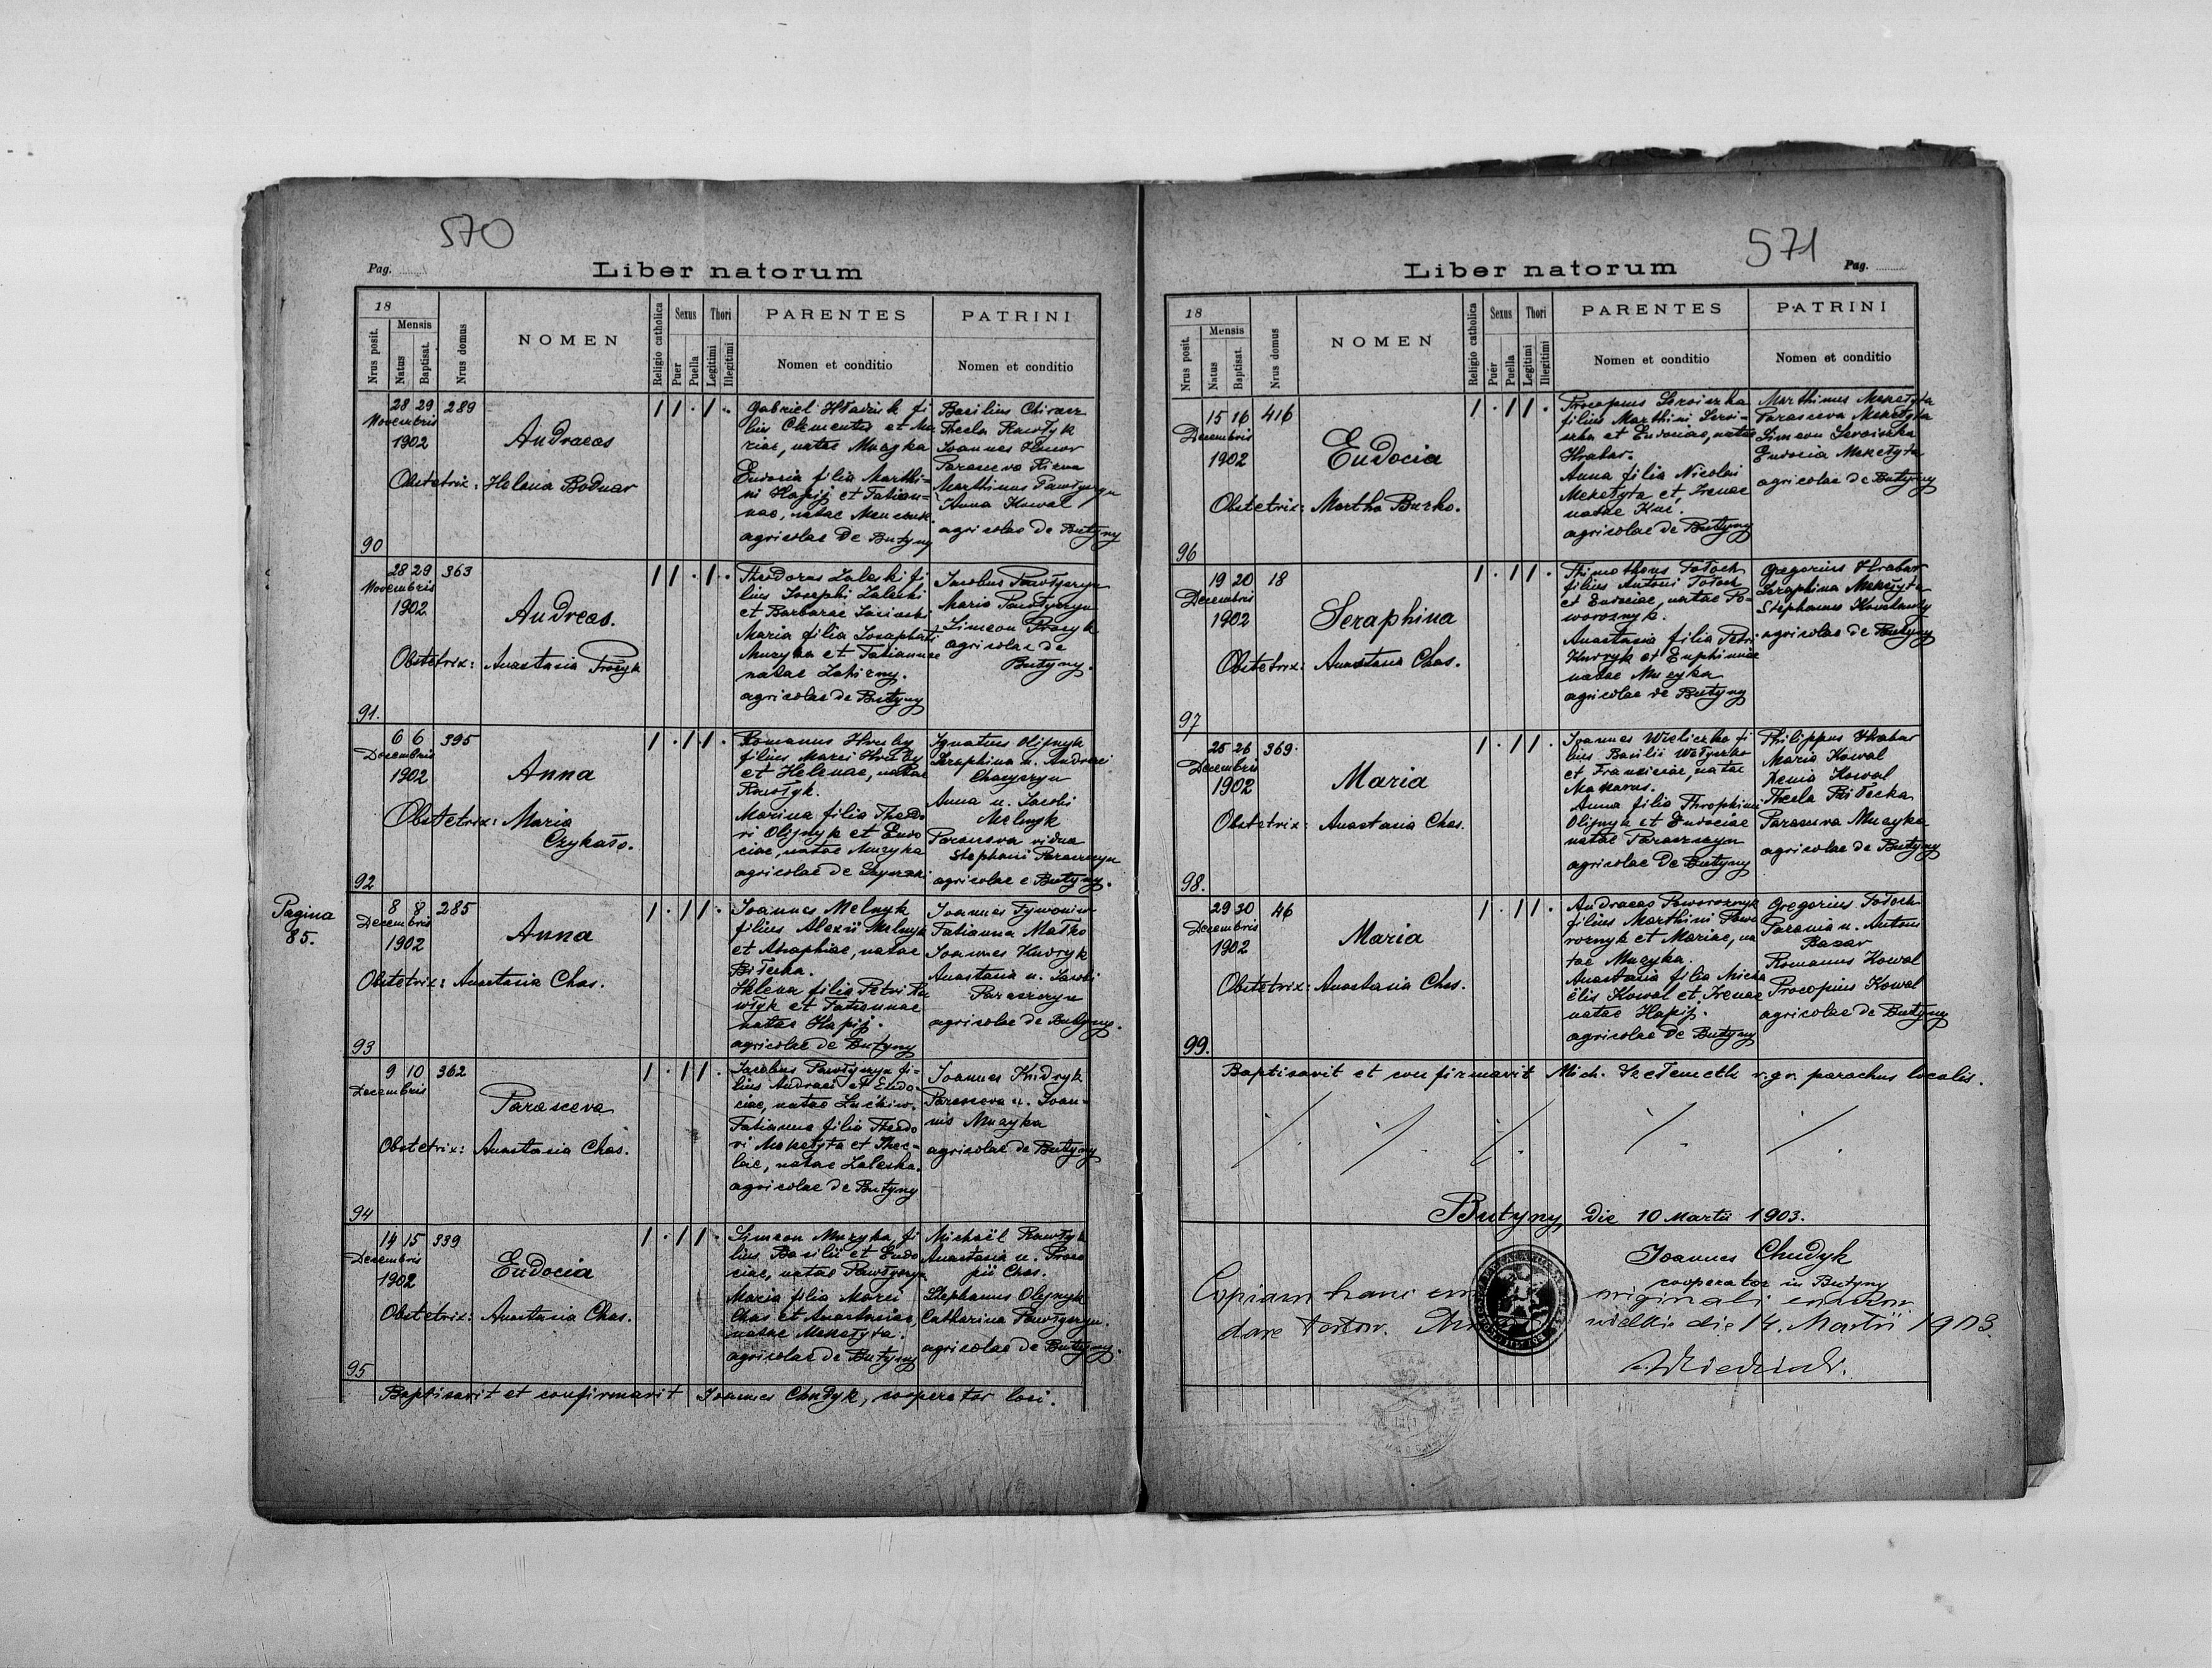 570
Pag.
Liber natorum
18
Mensis
Nrus posit.
Natus
Baptisat.
Nrus domus
NOMEN
Religio catholica
Sexus
Puer
Puella
Thori
Legitimi
Illegitimi
PARENTES
Nomen et conditio
PATRINI
Nomen et conditio
28 29 289
Novembris
1902
Andraeas
Obstetrix: Helena Bodnar
90
1 1 . 1 .
Gabriel Hładiuk fi
lius Clementis et Ma
riae, natae Muzyka
Eudocia filia Marthi=
ni Hapij et Tatian=
nae, natae
agricolae de Butyny
Basilius
Thecla Pawłyk
Joannes
Parasceva
Marthinus Pawłyszyn
Anna Kowal
agricolae de Butyny
28 29 363
Novembris
1902
Andreas.
Obstetrix: Anastasia Procyk
91.
1 1 . 1 .
Theodorus Zaleski fi
lius Josephi Zaleski
et Barbarae
Maria filia Josaphati
Muzyka et Tatiannae
natae
agricolae de Butyny
Jacobus Pawłyszyn
Maria Pawłyszyn
Simeon Procyk
agricolae de
Butyny.
6 6 395
Decembris
1902
Anna
Obstetrix: Maria
Czykało.
92
1 . 1 1 .
Romanus Hruby
filius Marci Hruby
et Helenae, natae
Pawłyk.
Marina filia Theodo
ri Olijnyk et Eudo
ciae, natae Muzyka
agricolae de
Ignatius Olijnyk
Seraphina u. Andraei
Anna u. Jacobi
Melnyk
Parasceva vidua
Stephani Paraszczyn
agricolae e Butyny.
Pagina
85.
8 8 285
Decembris
1902
Anna
Obstetrix: Anastasia Chas.
93
1 . 1 1 .
Joannes Melnyk
filius Alexii Melnyk
et natae
Biłecka.
Helena filia Petri Pa
włyk et Tatiannae
natae Hapij.
agricolae de Butyny
Joannes Tywoniw
Tatianna Matko
Joannes Kudryk
Anastasia u. Jacobi
Paraszczyn
agricolae de Butyny.
9 10 362
Decembris
Parasceva
Obstetrix: Anastasia Chas.
94
1 . 1 1 .
Jacobus Pawłyszyn fi=
lius Andraei et Eudo=
ciae, natae
Tatianna filia Theodo
ri Mekełyta et Thec=
lae, natae Zaleska.
agricolae de Butyny
Joannes Kudryk
Parasceva u. Joan=
nis Muzyka
agricolae de Butyny
14 15 339
Decembris
1902
Eudocia
Obstetrix: Anastasia Chas.
95
1 . 1 1 .
Simeon Muzyka, fi
lius Basilii et Eudo
ciae, natae Pawłyszyn
Maria filia Marci
Chas et Anastasiae,
natae Mekełyta.
agricolae de Butyny
Michaël Pawłyk
Anastasia u. Proco
pii Chas.
Stephanus Olijnyk
Catharina Pawłyszyn.
agricolae de Butyny.
Baptisavit et confirmavit Joannes Chudyk, cooperator loci.
571
Liber natorum
Pag.
18
Mensis
Nrus posit.
Natus
Baptisat.
Nrus domus
NOMEN
Religio catholica
Sexus
Puer
Puella
Thori
Legitimi
Illegitimi
PARENTES
Nomen et conditio
PATRINI
Nomen et conditio
15 16 416
Decembris
1902
Eudocia
Obstetrix: Martha Burko.
96
1 . 1 1 .
Procopius
filius Marthini
et Eudociae, natae
Hrabar.
Anna filia Nicolai
Mekełyta et Irenae
natae
agricolae de Butyny
Marthinus Mekełyta
Parasceva Mekełyta
Simeon
Eudocia Mekełyta
agricolae de Butyny
19 20 18
Decembris
1902
Seraphina
Obstetrix: Anastasia Chas.
97
1 . 1 1 .
Thimotheus Tołoch
filius Antoni Tołoch
et Eudociae, natae Po=
woroznyk.
Anastasia filia Petri
Kudryk et Euphimiae
natae Muzyka
agricolae de Butyny
Gregorius Hrabar
Seraphina Mekełyta
Stephanus
agricolae de Butyny
25 26 369
Decembris
1902
Maria
Obstetrix: Anastasia Chas.
98.
1 . 1 1 .
Joannes Wieliczko fi
lius Basilii
et Franciscae, natae
Makarus.
Anna filia Throphimi
Olijnyk et Eudociae
natae Paraszczyn
agricolae de Butyny
Philippus Hrabar
Maria Kowal
Xenia Kowal
Thecla Biłecka
Parasceva Muzyka
agricolae de Butyny
29 30 46
Decembris
1902
Maria
Obstetrix: Anastasia Chas.
99.
1 . 1 1 .
Andraeas Poworoznyk
filius Marthini Powo
roznyk et Mariae, na
tae Muzyka.
Anastasia filia Micha
ëlis Kowal et Irenae
natae Hapij.
agricolae de Butyny
Gregorius Tołoch
Parania u. Antoni
Bazar
Romanus Kowal
Procopius Kowal
agricolae de Butyny
Baptisavit et confirmavit Mich. r.gr. parochus localis.
Butyny, die 10 Martii 1903.
Joannes Chudyk
cooperator in Butyny
Copiam hanc cum originali
dare testor. die 14. Martii 1903.